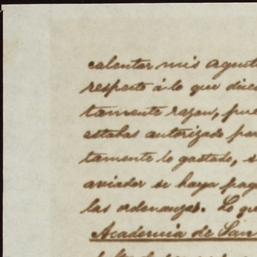 calentar mis agust
respecto á lo que dice
tamente razon, pue
estabas autorizado par
tamente lo gastado, s
aviador se haya pag
las ordenanzas. Lo que
Academia de San